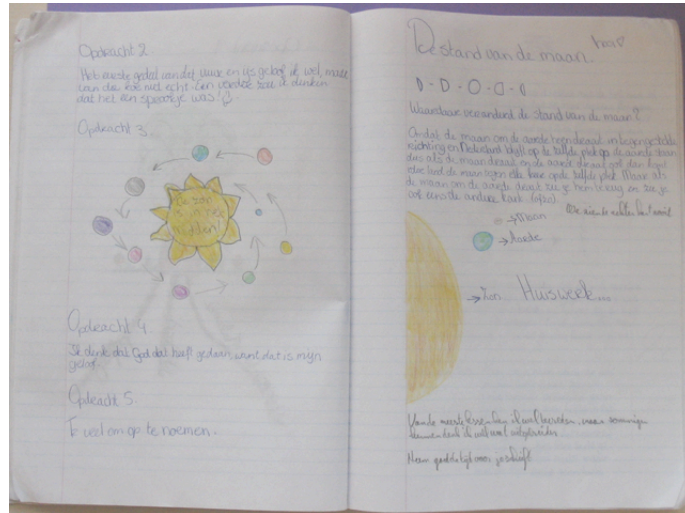 Opdracht 2
Het eerste gedeelte van het vuur en ijs geloof ik wel, maar
van die koe niet echt. Een verder zou ik denken
dat het een sprookje was!
Opdracht 3.
De zon
is in het
midden!
Opdracht 4
Ik denk dat God dat heeft gedaan, want dat is mijn
geloof.
Opdracht 5
Te veel om op te noemen.
De stand van de maan.
Waardoor veranderd de stand van de maan?
Omdat de maan om de aarde heen draait in tegengestelde
richting en Nederland blijft op de zelfde plek op de aarde staan
dus als de maan draait en de aarde draait ook dan
de maan op de zelfde plek. Maar als
de maan om de aarde draait zie je hem en zie je
ook eens de andere kant
We zien de achter kant nooit
→ Maan
→ Aarde
→ Zon Huiswerk...
Van de meeste lessen ben ik wel tevreden, maar sommige
Neem je schrift